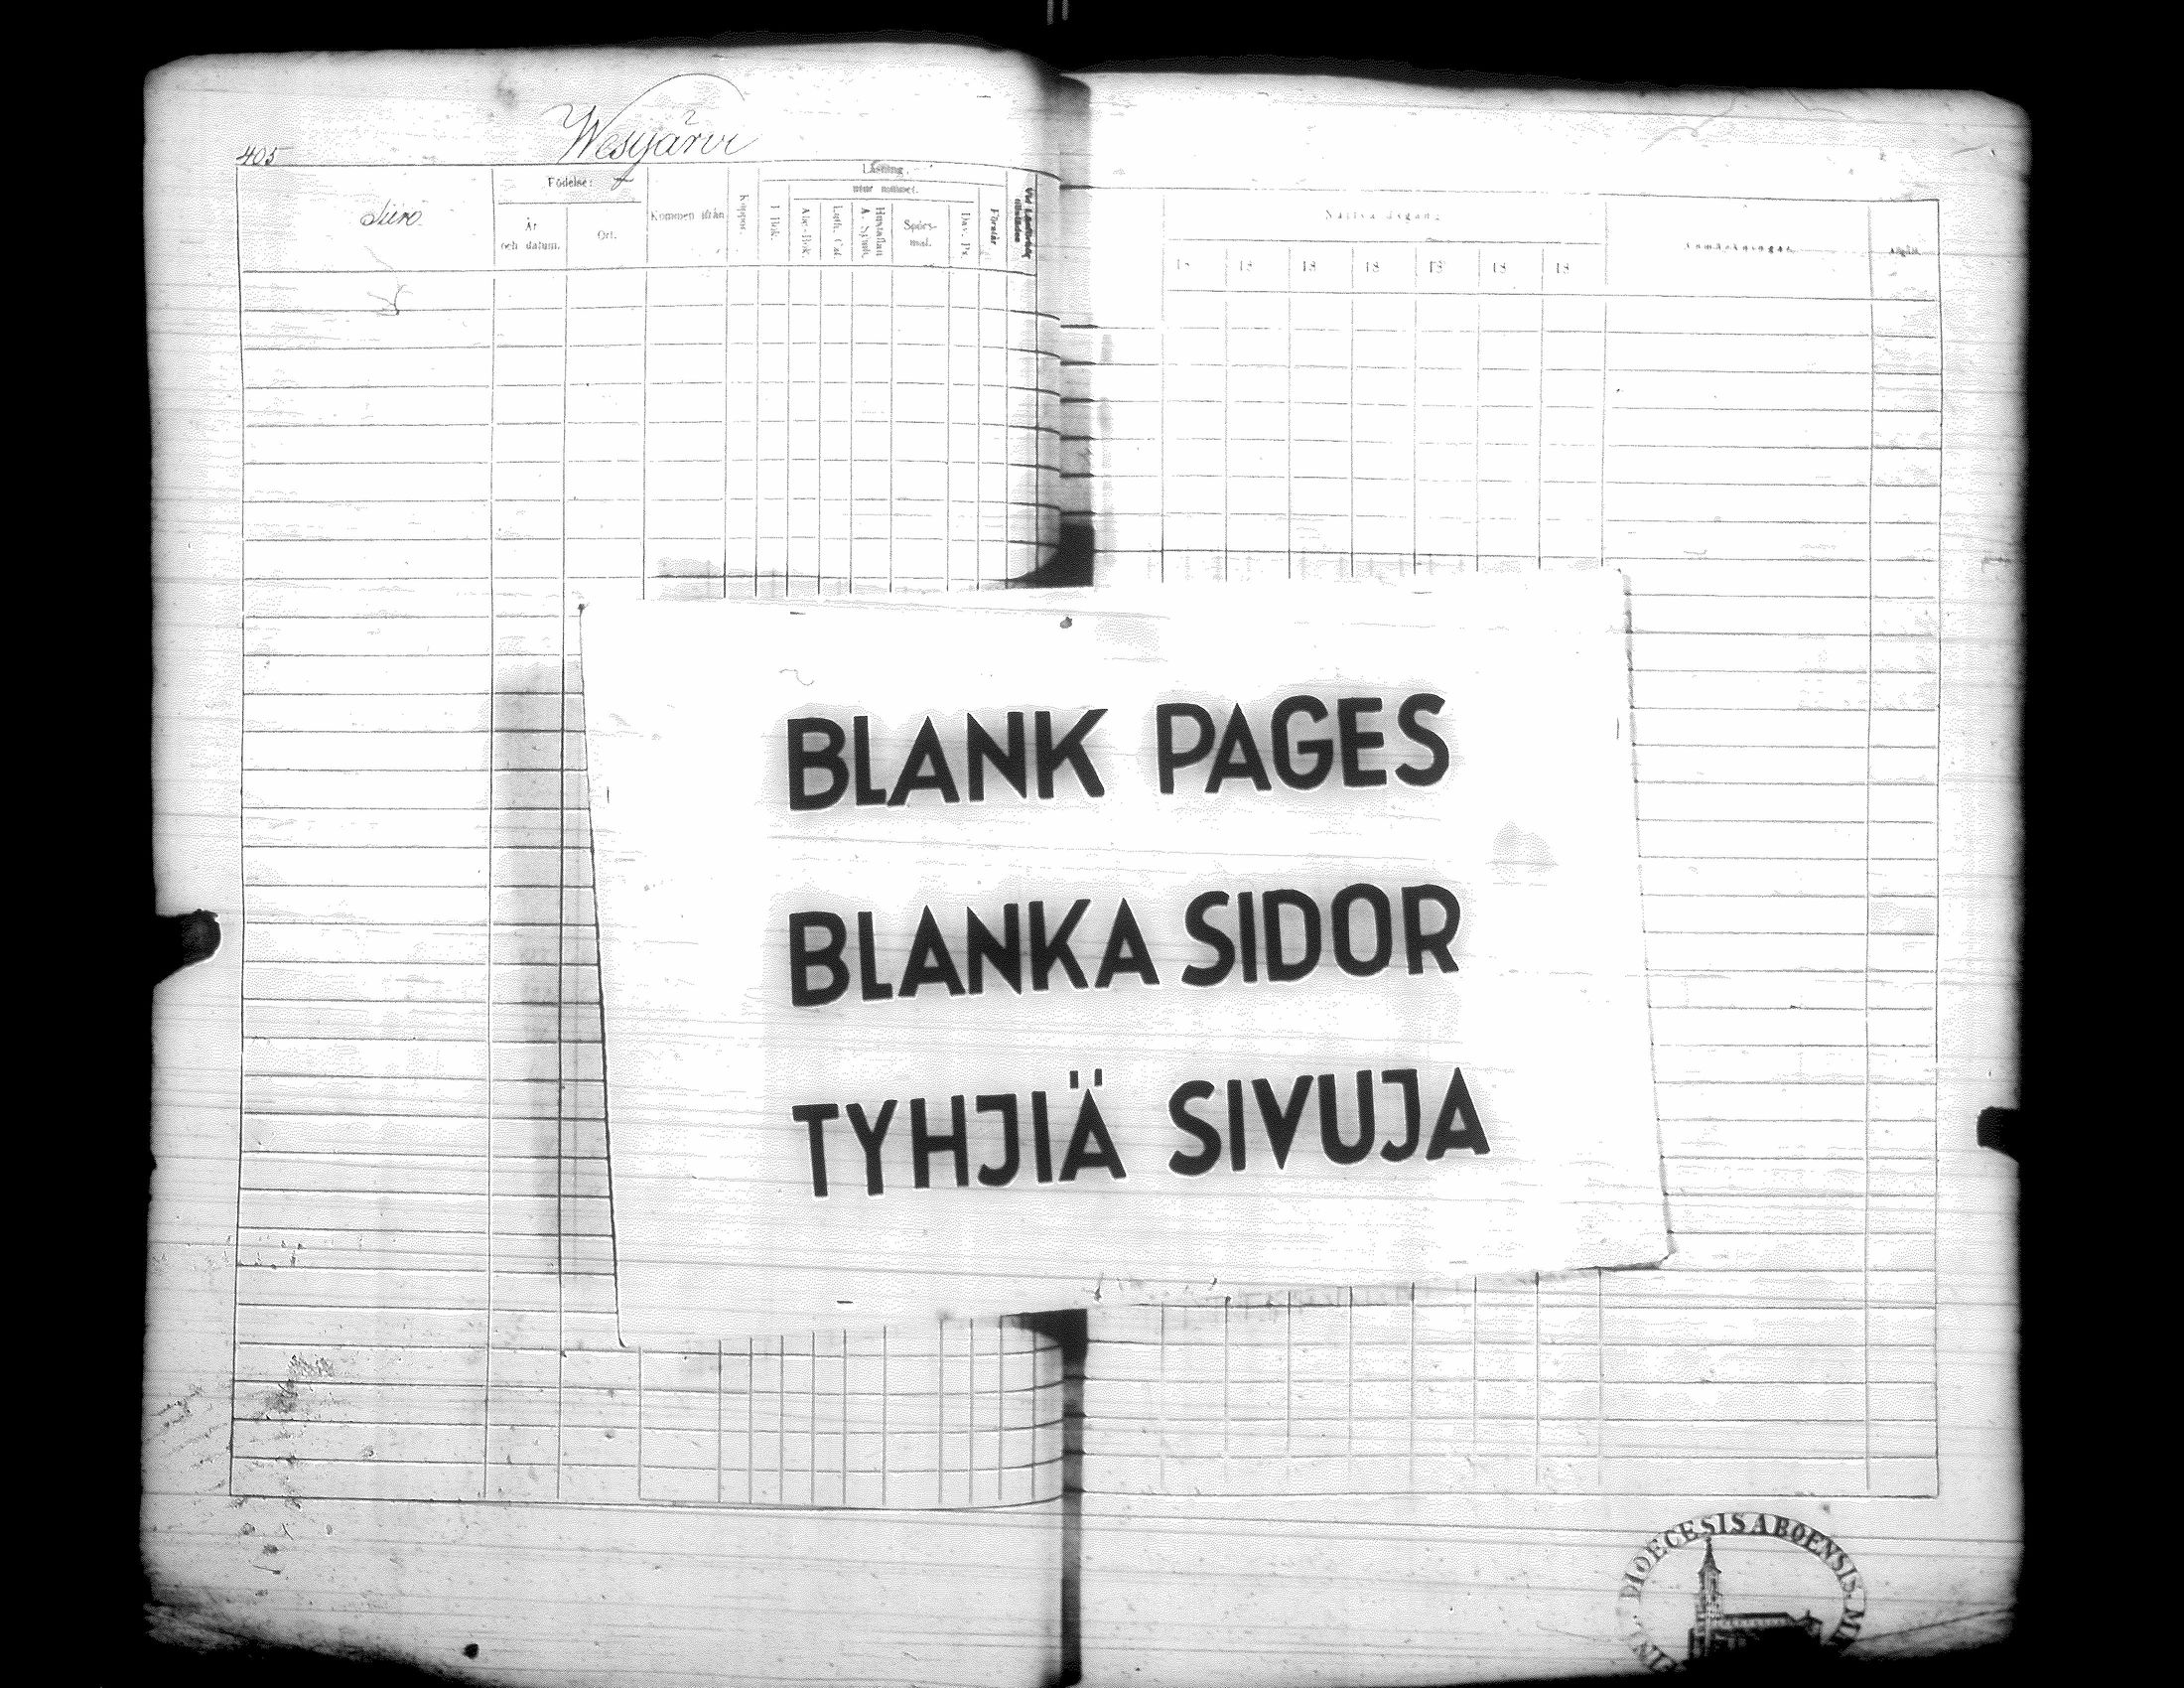 Wesijärvi
405
Siiro
Födelse:
År
och datum.
Ort.
Kommen ifrån
Koppor.
Läsning.
utur minnet.
I Bok.
Abc-Bok.
Luth. Cat.
Hustaflan
A. Symb.
Spörs-
mål.
Dav. Ps.
Förstår
Nattvardsgång
18 18 18 18 18 18 18
Anmärkningar.
BLANK PAGES
BLANKA SIDOR
TYHJIÄ SIVUJA
DIOECESIS ABOENSIS